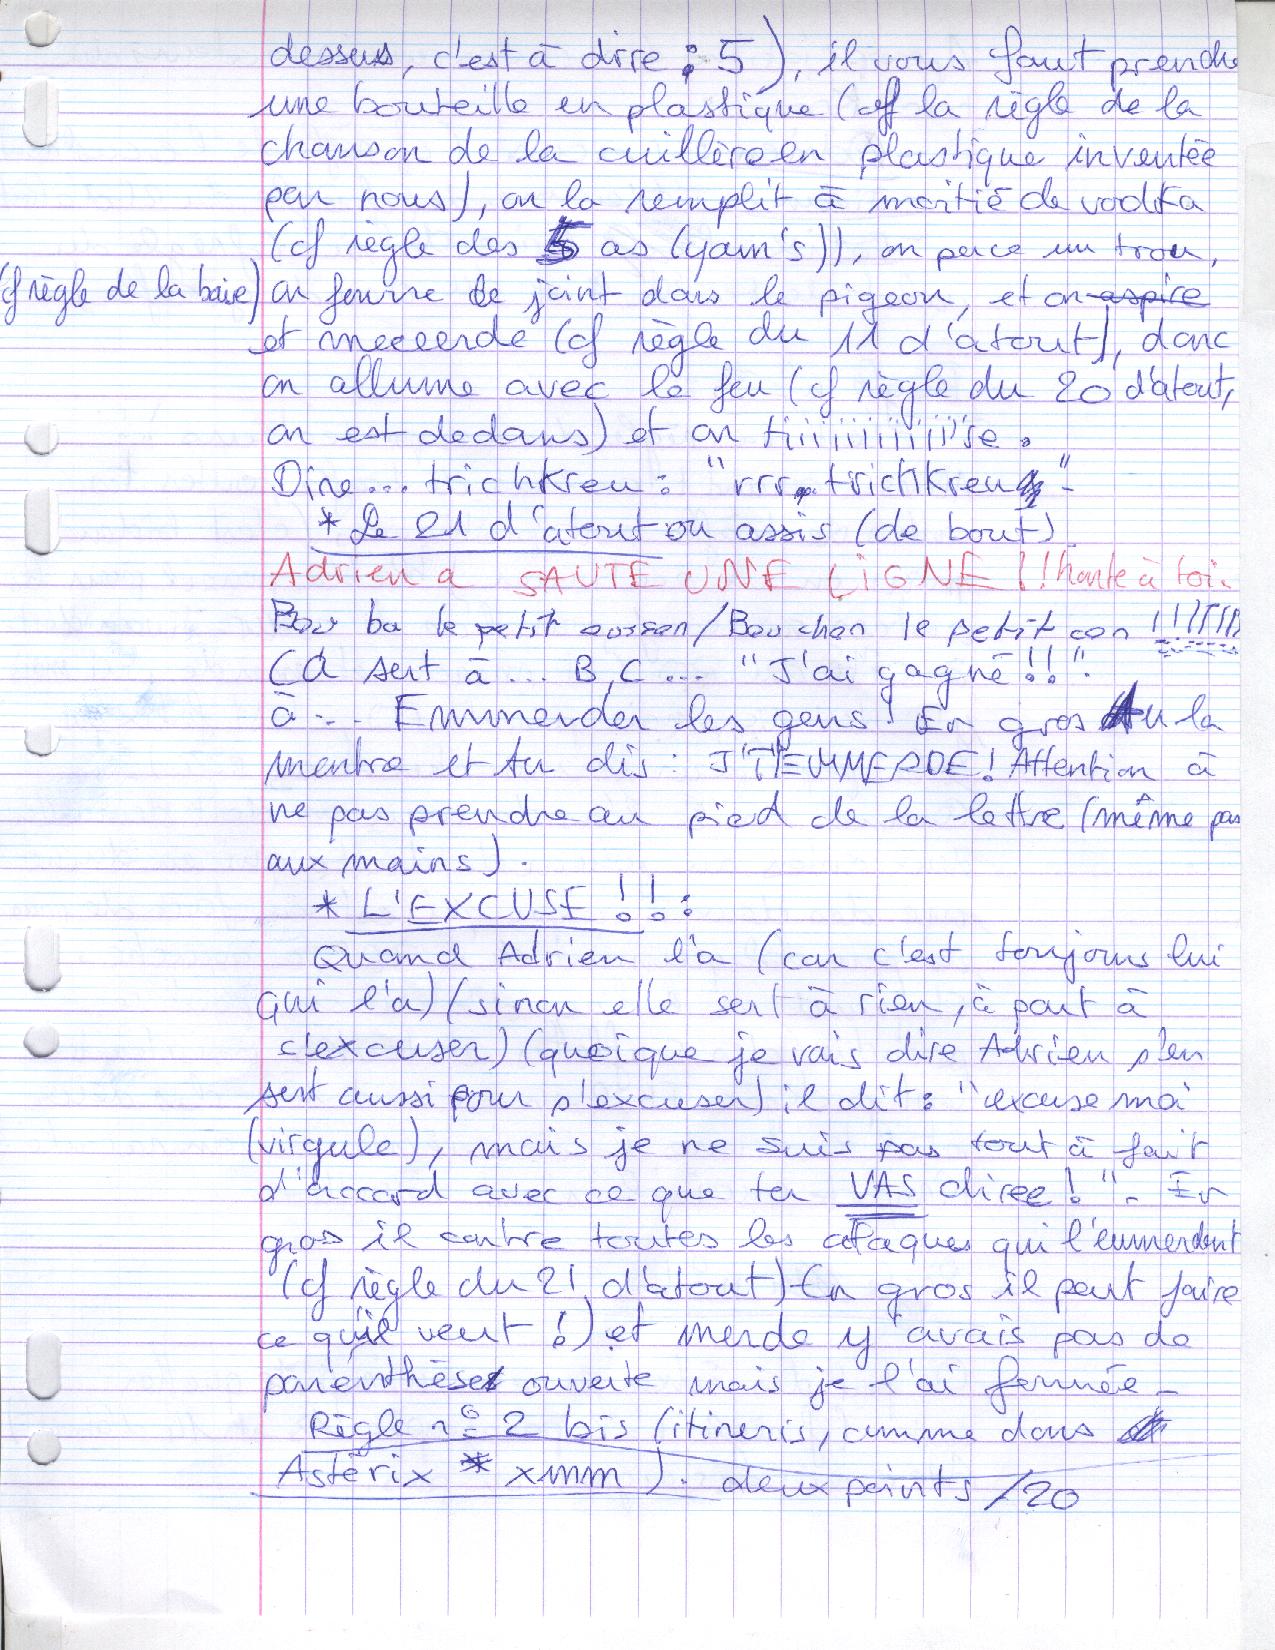 dessus, c'est à dire : 5), il vous faut prendre
une bouteille en plastique (cf la règle de la
chanson de la cuillère en plastique inventée
par nous), on la remplit à moitié de vodka
(cf règle des 5 as (yam's)), on perce un trou,
(cf règle de la baie) on fourre le joint dans le pigeon, et on aspire
et meeeerde (cf règle du 11 d'atout), donc
on allume avec le feu (cf règle du 20 d'atout,
on est dedans) et on tiiiiiiiiiiiise.
Dire... trichkreu : "rrr... trichkreu"-
* Le 21 d'atout ou assis (de bout)
Adrien a SAUTE UNE LIGNE !! honte à toi.
Bou ba le petit ourson/Bouchon le petit con !!!!!!!!
CA sert à... B,C... "J'ai gagné!!".
à... Emmerder les gens! En gros tu la
montre et tu dis : J'T'EMMERDE! Attention à
ne pas prendre au pied de la lettre (même pas
aux mains).
* L'EXCUSE !!:
Quand Adrien l'a (car c'est toujours lui
qui l'a) (sinon elle sert à rien, à part à
s'excuser) (quoique je vais dire Adrien s'en
sert aussi pour s'excuser) il dit : "excuse moi
(virgule), mais je ne suis pas tout à fait
d'accord avec ce que tu VAS diree!". En
gros il contre toutes les ataques qui l'emmerdent
(cf règle du 21 d'atout). En gros il peut faire
ce qu'il veut !) et merde y'avais pas de
parenthèse ouverte mais je l'ai fermée -
Règle n° 2 bis (itineris, comme dans
Astérix * xmm). deux points /20